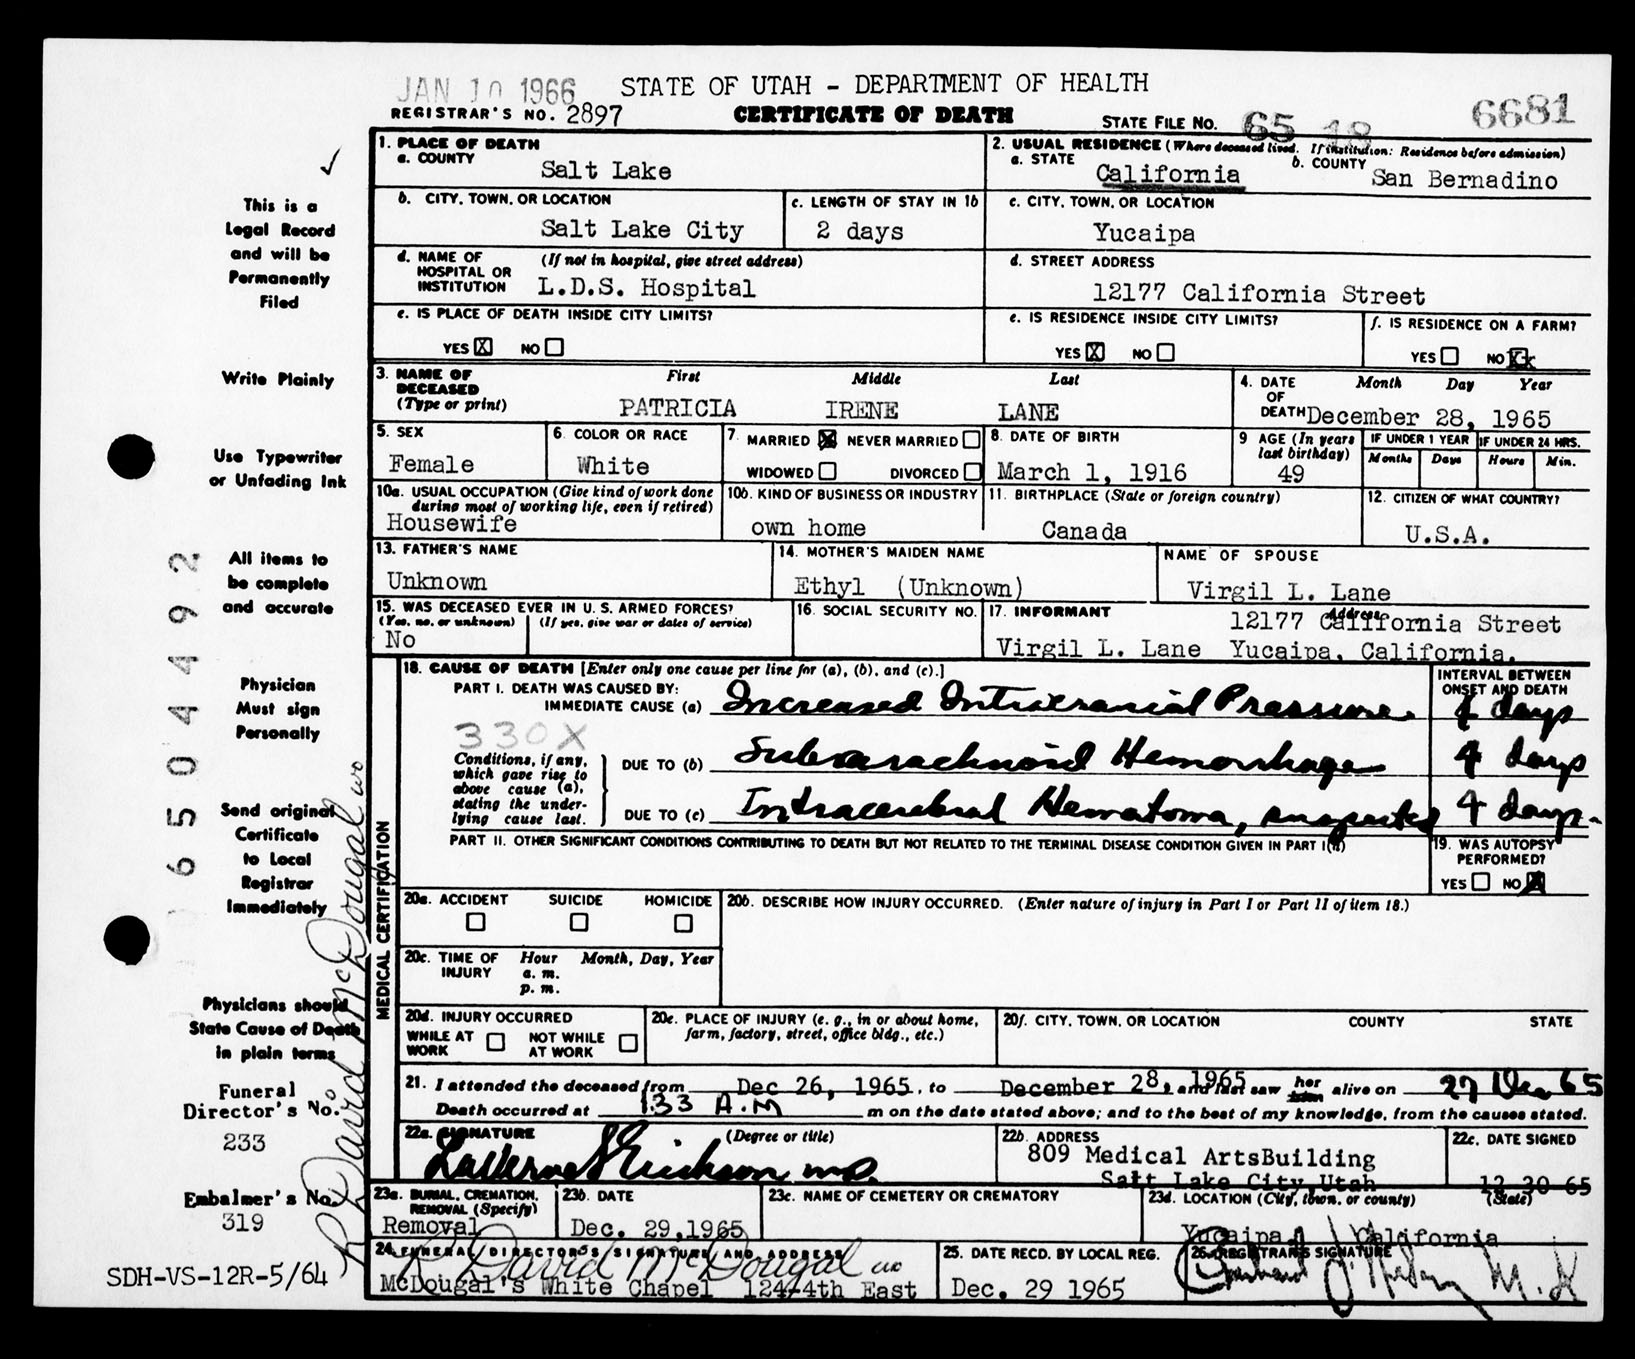 JAN 10 1966 STATE OF UTAH - DEPARTMENT OF HEALTH
REGISTRAR'S NO. 2897 CERTIFICATE OF DEATH STATE FILE NO. 65 18 6681
1. PLACE OF DEATH
a. COUNTY Salt Lake
2. USUAL RESIDENCE (Where deceased lived. If institution: Residence before admission)
a. STATE California b. COUNTY San Bernadino
b. CITY, TOWN, OR LOCATION Salt Lake City
c. LENGTH OF STAY IN 1b 2 days
c. CITY, TOWN, OR LOCATION Yucaipa
d. NAME OF HOSPITAL OR INSTITUTION (If not in hospital, give street address) L.D.S. Hospital
d. STREET ADDRESS 12177 California Street
e. IS PLACE OF DEATH INSIDE CITY LIMITS?
YES X NO
e. IS RESIDENCE INSIDE CITY LIMITS?
YES X NO
f. IS RESIDENCE ON A FARM?
YES NO Xx
3. NAME OF DECEASED (Type or print)
First Middle Last
PATRICIA IRENE LANE
4. DATE OF DEATH Month Day Year
December 28, 1965
5. SEX Female
6. COLOR OR RACE White
7. MARRIED X NEVER MARRIED
WIDOWED DIVORCED
8. DATE OF BIRTH March 1, 1916
9 AGE (In years last birthday) 49
IF UNDER 1 YEAR Months Days
IF UNDER 24 HRS. Hours Min.
10a. USUAL OCCUPATION (Give kind of work done during most of working life, even if retired) Housewife
10b. KIND OF BUSINESS OR INDUSTRY own home
11. BIRTHPLACE (State or foreign country) Canada
12. CITIZEN OF WHAT COUNTRY? U.S.A.
13. FATHER'S NAME Unknown
14. MOTHER'S MAIDEN NAME Ethyl (Unknown)
NAME OF SPOUSE Virgil L. Lane
15. WAS DECEASED EVER IN U.S. ARMED FORCES?
(Yes, no, or unknown) (If yes, give war or dates of service)
No
16. SOCIAL SECURITY NO.
17. INFORMANT Address
12177 California Street
Virgil L. Lane Yucaipa, California.
MEDICAL CERTIFICATION
18. CAUSE OF DEATH [Enter only one cause per line for (a), (b), and (c).]
INTERVAL BETWEEN ONSET AND DEATH
PART I. DEATH WAS CAUSED BY:
IMMEDIATE CAUSE (a) Increased Intracranial Pressure. 4 days
330X
Conditions, if any, which gave rise to above cause (a), stating the underlying cause last.
DUE TO (b) Subarachnoid Hemorrhage 4 days
DUE TO (c) Intracerebral Hematoma, suspected 4 days.
PART II. OTHER SIGNIFICANT CONDITIONS CONTRIBUTING TO DEATH BUT NOT RELATED TO THE TERMINAL DISEASE CONDITION GIVEN IN PART I(a)
19. WAS AUTOPSY PERFORMED?
YES NO X
20a. ACCIDENT SUICIDE HOMICIDE
20b. DESCRIBE HOW INJURY OCCURRED. (Enter nature of injury in Part I or Part II of item 18.)
20c. TIME OF INJURY Hour Month, Day, Year
a. m.
p. m.
20d. INJURY OCCURRED
WHILE AT WORK NOT WHILE AT WORK
20e. PLACE OF INJURY (e. g., in or about home, farm, factory, street, office bldg., etc.)
20f. CITY, TOWN, OR LOCATION COUNTY STATE
21. I attended the deceased from Dec 26, 1965, to December 28, 1965 and last saw her him alive on 27 Dec 65
Death occurred at 1:33 A.M m on the date stated above; and to the best of my knowledge, from the causes stated.
22a. SIGNATURE (Degree or title)
LaVerne S Erickson MD.
22b. ADDRESS
809 Medical ArtsBuilding
Salt Lake City,Utah
22c. DATE SIGNED
12-30-65
23a. BURIAL, CREMATION, REMOVAL (Specify) Removal
23b. DATE Dec. 29,1965
23c. NAME OF CEMETERY OR CREMATORY
23d. LOCATION (City, town, or county) (State)
Yucaipa, California
24. FUNERAL DIRECTOR'S SIGNATURE AND ADDRESS
R David McDougal
McDougal's White Chapel 124-4th East
25. DATE RECD. BY LOCAL REG.
Dec. 29 1965
26. REGISTRAR'S SIGNATURE
This is a
Legal Record
and will be
Permanently
Filed
Write Plainly
Use Typewriter
or Unfading Ink
All items to
be complete
and accurate
Physician
Must sign
Personally
Send original
Certificate
to Local
Registrar
Immediately
Physicians should
State Cause of Death
in plain terms
Funeral
Director's No.
233
Embalmer's No.
319
SDH-VS-12R-5/64
0 6 5 0 4 4 9 2
R David McDougal